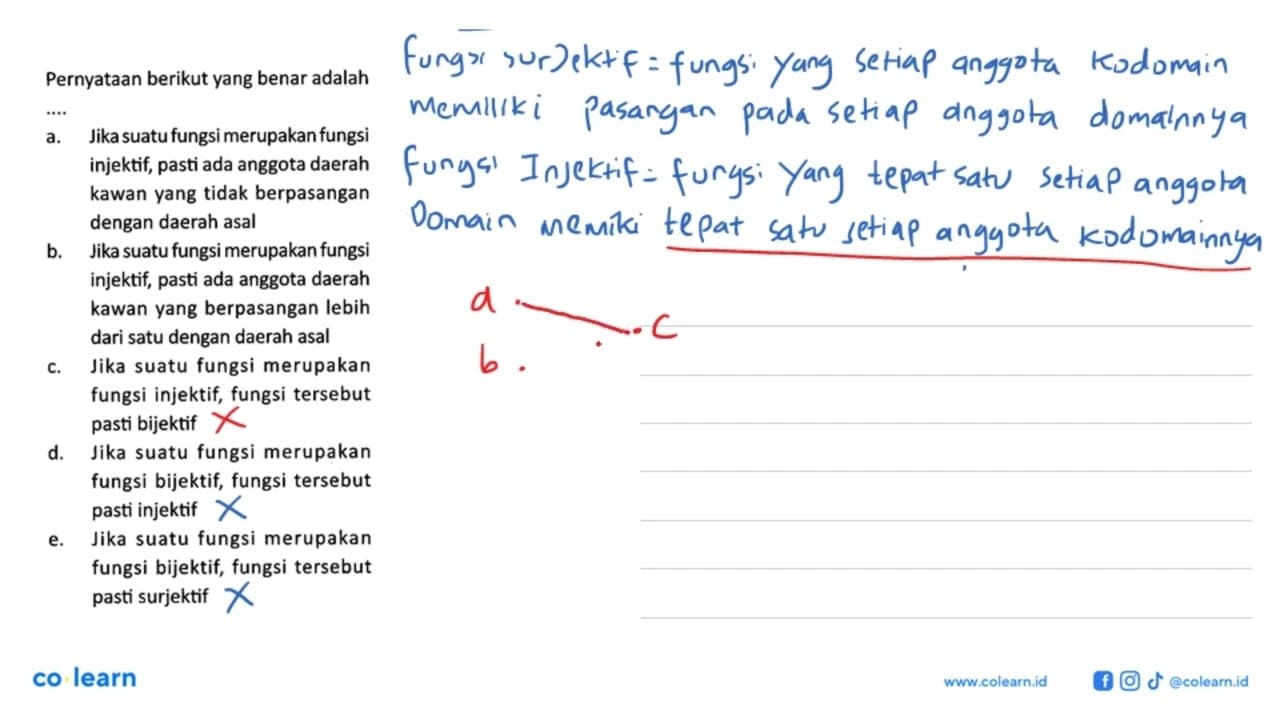 Pernyataan berikut yang benar adalah
....
a. Jika suatu fungsi merupakan fungsi
injektif, pasti ada anggota daerah
kawan yang tidak berpasangan
dengan daerah asal
b. Jika suatu fungsi merupakan fungsi
injektif, pasti ada anggota daerah
kawan yang berpasangan lebih
dari satu dengan daerah asal
c. Jika suatu fungsi merupakan
fungsi injektif, fungsi tersebut
pasti bijektif X
d. Jika suatu fungsi merupakan
fungsi bijektif, fungsi tersebut
pasti injektif X
e. Jika suatu fungsi merupakan
fungsi bijektif, fungsi tersebut
pasti surjektif X
fungsi surjektif = fungsi yang setiap anggota kodomain
memiliki pasangan pada setiap anggota domainnya
fungsi Injektif = fungsi yang tepat satu setiap anggota
Domain memiki tepat satu setiap anggota kodomainnya
a
c
b
co learn
www.colearn.id
@colearn.id